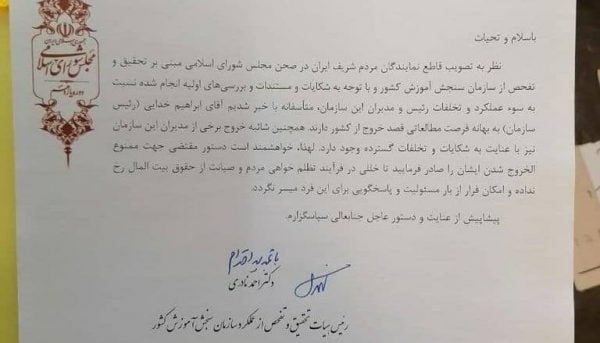 جمهوری اسلامی ایران
مجلس شورای اسلامی
باسلام و تحیات
نظر به تصویب قاطع نمایندگان مردم شریف ایران در صحن مجلس شورای اسلامی مبنی بر تحقیق و
تفحص از سازمان سنجش آموزش کشور و با توجه به شکایات و مستندات و بررسی‌های اولیه انجام شده نسبت
به سوء عملکرد و تخلفات رئیس و مدیران این سازمان، متأسفانه با خبر شدیم آقای ابراهیم خدایی (رئیس
سازمان) به بهانه فرصت مطالعاتی قصد خروج از کشور دارند. همچنین شائبه خروج برخی از مدیران این سازمان
نیز با عنایت به شکایات و تخلفات گسترده وجود دارد. لهذا، خواهشمند است دستور مقتضی جهت ممنوع
الخروج شدن ایشان را صادر فرمایید تا خللی در فرآیند تظلم خواهی مردم و صیانت از حقوق بیت المال رخ
نداده و امکان فرار از بار مسئولیت و پاسخگویی برای این فرد میسر نگردد.
پیشاپیش از عنایت و دستور عاجل جنابعالی سپاسگزارم.
با تقدیم احترام
دکتر احمد نادری
رئیس هیات تحقیق و تفحص از عملکرد سازمان سنجش آموزش کشور